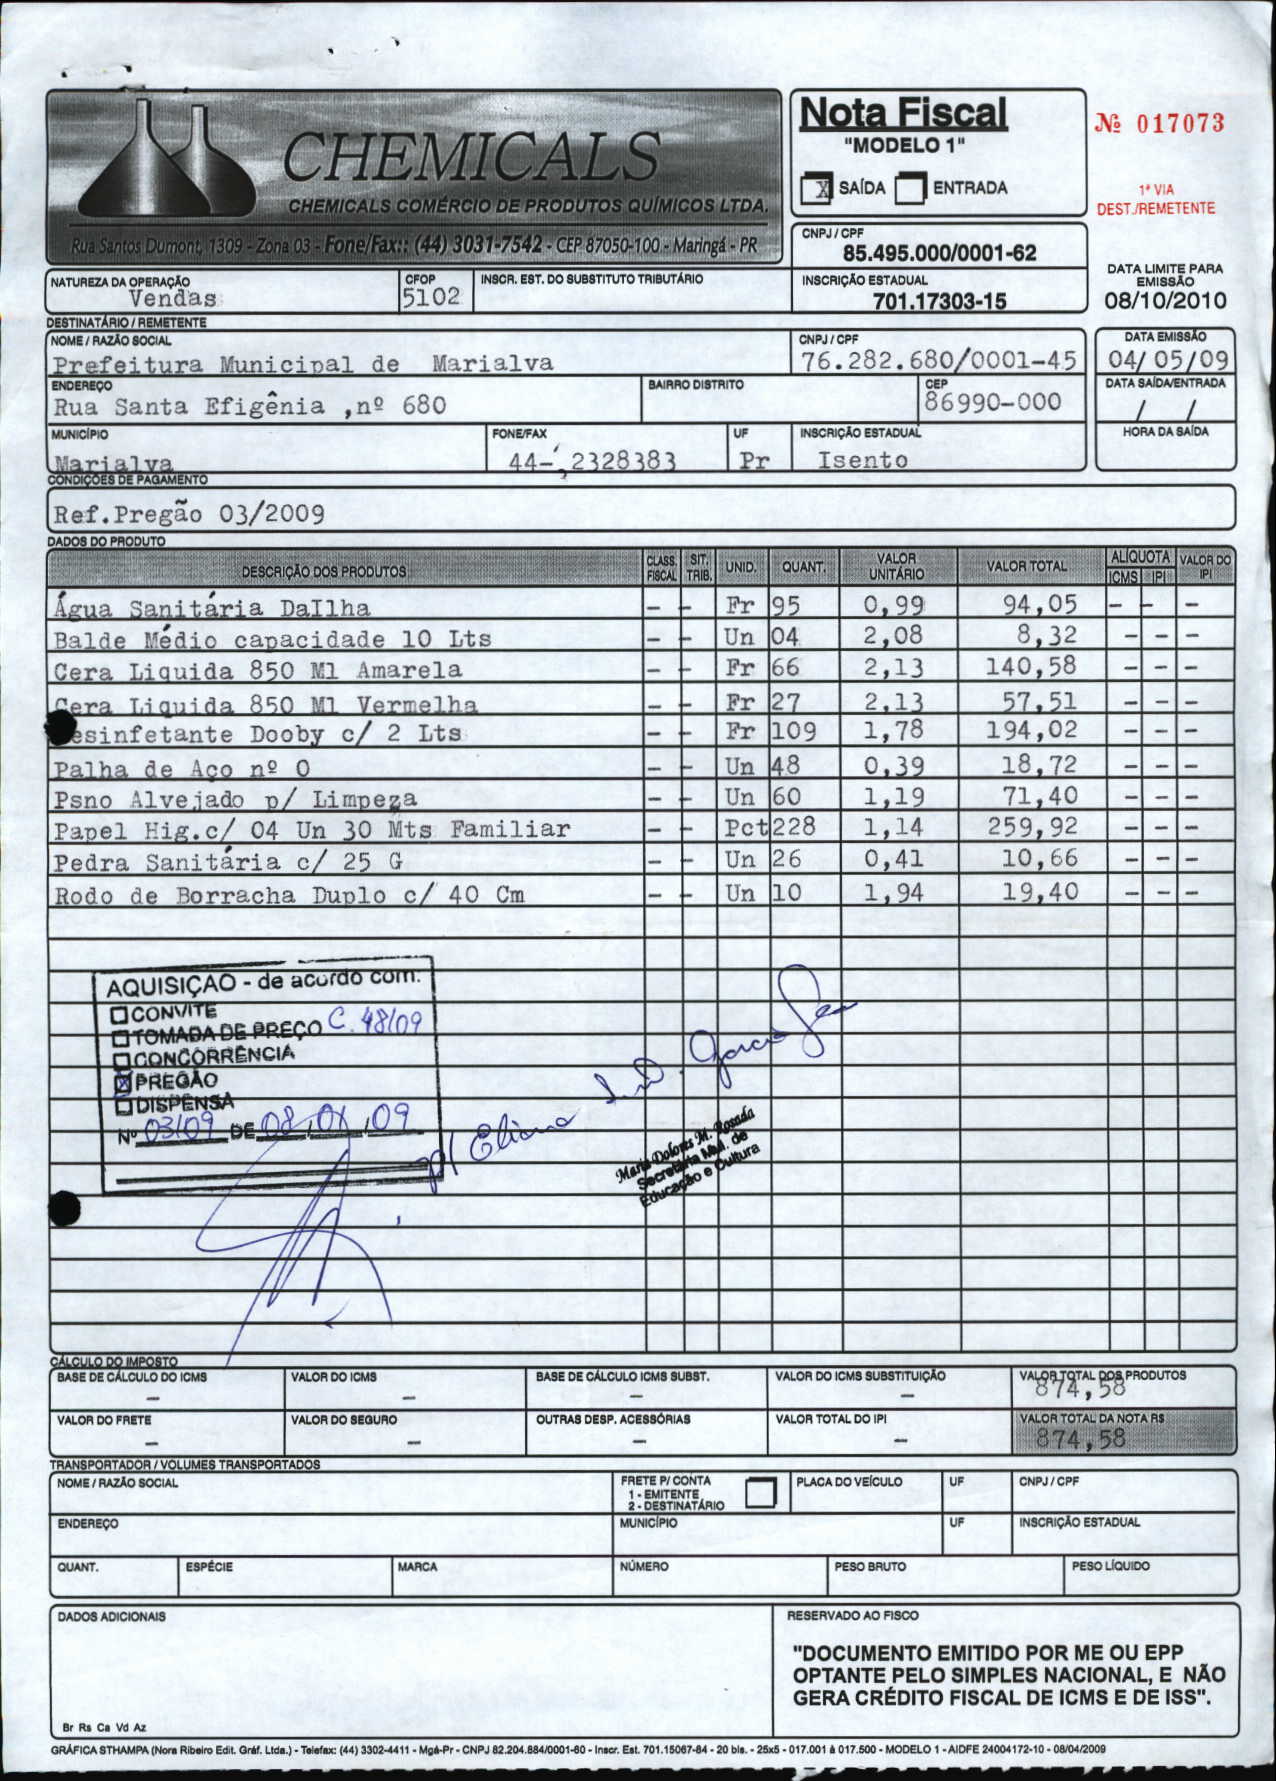 CHEMICALS
CHEMICALS COMÉRCIO DE PRODUTOS QUÍMICOS LTDA.
Rua Santos Dumont, 1309 - Zona 03 - Fone/Fax:: (44) 3031-7542 - CEP 87050-100 - Maringá - PR
Nota Fiscal
"MODELO 1"
X SAÍDA ENTRADA
Nº 017073
1ª VIA
DEST./REMETENTE
CNPJ / CPF
85.495.000/0001-62
NATUREZA DA OPERAÇÃO
Vendas
CFOP
5102
INSCR. EST. DO SUBSTITUTO TRIBUTÁRIO
INSCRIÇÃO ESTADUAL
701.17303-15
DATA LIMITE PARA
EMISSÃO
08/10/2010
DESTINATÁRIO / REMETENTE
NOME / RAZÃO SOCIAL
Prefeitura Municipal de Marialva
CNPJ / CPF
76.282.680/0001-45
DATA EMISSÃO
04/05/09
ENDEREÇO
Rua Santa Efigênia ,nº 680
BAIRRO DISTRITO
CEP
86990-000
DATA SAÍDA/ENTRADA
/ /
MUNICÍPIO
Marialva
FONE/FAX
44- 2328383
UF
Pr
INSCRIÇÃO ESTADUAL
Isento
HORA DA SAÍDA
CONDIÇÕES DE PAGAMENTO
Ref.Pregão 03/2009
DADOS DO PRODUTO
DESCRIÇÃO DOS PRODUTOS CLASS. FISCAL SIT. TRIB. UNID. QUANT. VALOR UNITÁRIO VALOR TOTAL ALÍQUOTA ICMS IPI VALOR DO IPI
Água Sanitária DaIlha - - Fr 95 0,99 94,05 - - -
Balde Médio capacidade 10 Lts - - Un 04 2,08 8,32 - - -
Cera Liquida 850 Ml Amarela - - Fr 66 2,13 140,58 - - -
Cera Liquida 850 Ml Vermelha - - Fr 27 2,13 57,51 - - -
esinfetante Dooby c/ 2 Lts - - Fr 109 1,78 194,02 - - -
Palha de Aço nº 0 - - Un 48 0,39 18,72 - - -
Psno Alvejado p/ Limpeza - - Un 60 1,19 71,40 - - -
Papel Hig.c/ 04 Un 30 Mts Familiar - - Pct 228 1,14 259,92 - - -
Pedra Sanitária c/ 25 G - - Un 26 0,41 10,66 - - -
Rodo de Borracha Duplo c/ 40 Cm - - Un 10 1,94 19,40 - - -
AQUISIÇÃO - de acordo com.
CONVITE
TOMADA DE PREÇO C. 48/09
CONCORRÊNCIA
X PREGÃO
DISPENSA
Nº 03/09 DE 08/01/09
p/ Eliana Garcia
Maria Dolores M. Rosada
Secretária Mul. de
Educação e Cultura
CÁLCULO DO IMPOSTO
BASE DE CÁLCULO DO ICMS
-
VALOR DO ICMS
-
BASE DE CÁLCULO ICMS SUBST.
-
VALOR DO ICMS SUBSTITUIÇÃO
-
VALOR TOTAL DOS PRODUTOS
874,58
VALOR DO FRETE
-
VALOR DO SEGURO
-
OUTRAS DESP. ACESSÓRIAS
-
VALOR TOTAL DO IPI
-
VALOR TOTAL DA NOTA R$
874,58
TRANSPORTADOR / VOLUMES TRANSPORTADOS
NOME / RAZÃO SOCIAL
FRETE P/ CONTA
1 - EMITENTE
2 - DESTINATÁRIO
PLACA DO VEÍCULO
UF
CNPJ / CPF
ENDEREÇO
MUNICÍPIO
UF
INSCRIÇÃO ESTADUAL
QUANT.
ESPÉCIE
MARCA
NÚMERO
PESO BRUTO
PESO LÍQUIDO
DADOS ADICIONAIS
RESERVADO AO FISCO
"DOCUMENTO EMITIDO POR ME OU EPP
OPTANTE PELO SIMPLES NACIONAL, E NÃO
GERA CRÉDITO FISCAL DE ICMS E DE ISS".
Br Rs Ca Vd Az
GRÁFICA STHAMPA (Nora Ribeiro Edit. Gráf. Ltda.) - Telefax: (44) 3302-4411 - Mgá-Pr - CNPJ 82.204.884/0001-60 - Inscr. Est. 701.15067-84 - 20 bls. - 25x5 - 017.001 à 017.500 - MODELO 1 - AIDFE 24004172-10 - 08/04/2009